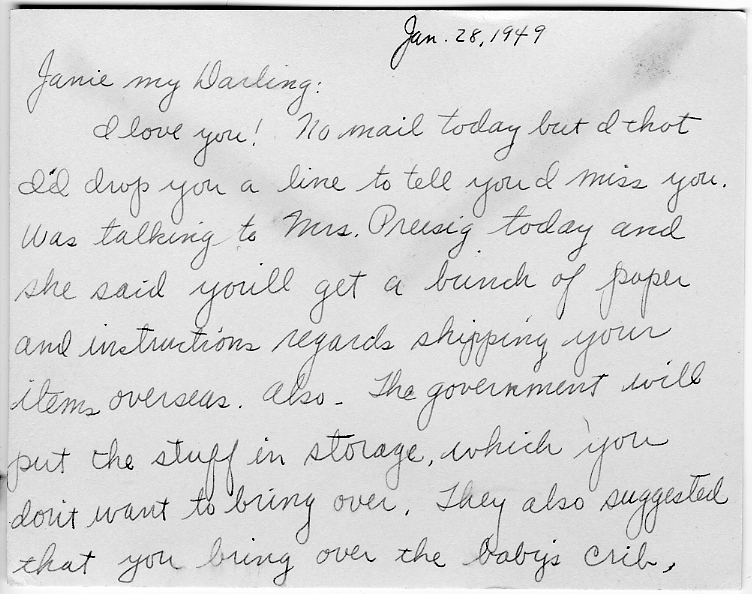 Jan. 28, 1949
Janie my Darling:
I love you! No mail today but I thot
I'd drop you a line to tell you I miss you.
Was talking to Mrs. Preisig today and
she said you'll get a bunch of paper
and instructions regards shipping your
items overseas. Also - The government will
put the stuff in storage, which you
don't want to bring over. They also suggested
that you bring over the baby's crib,